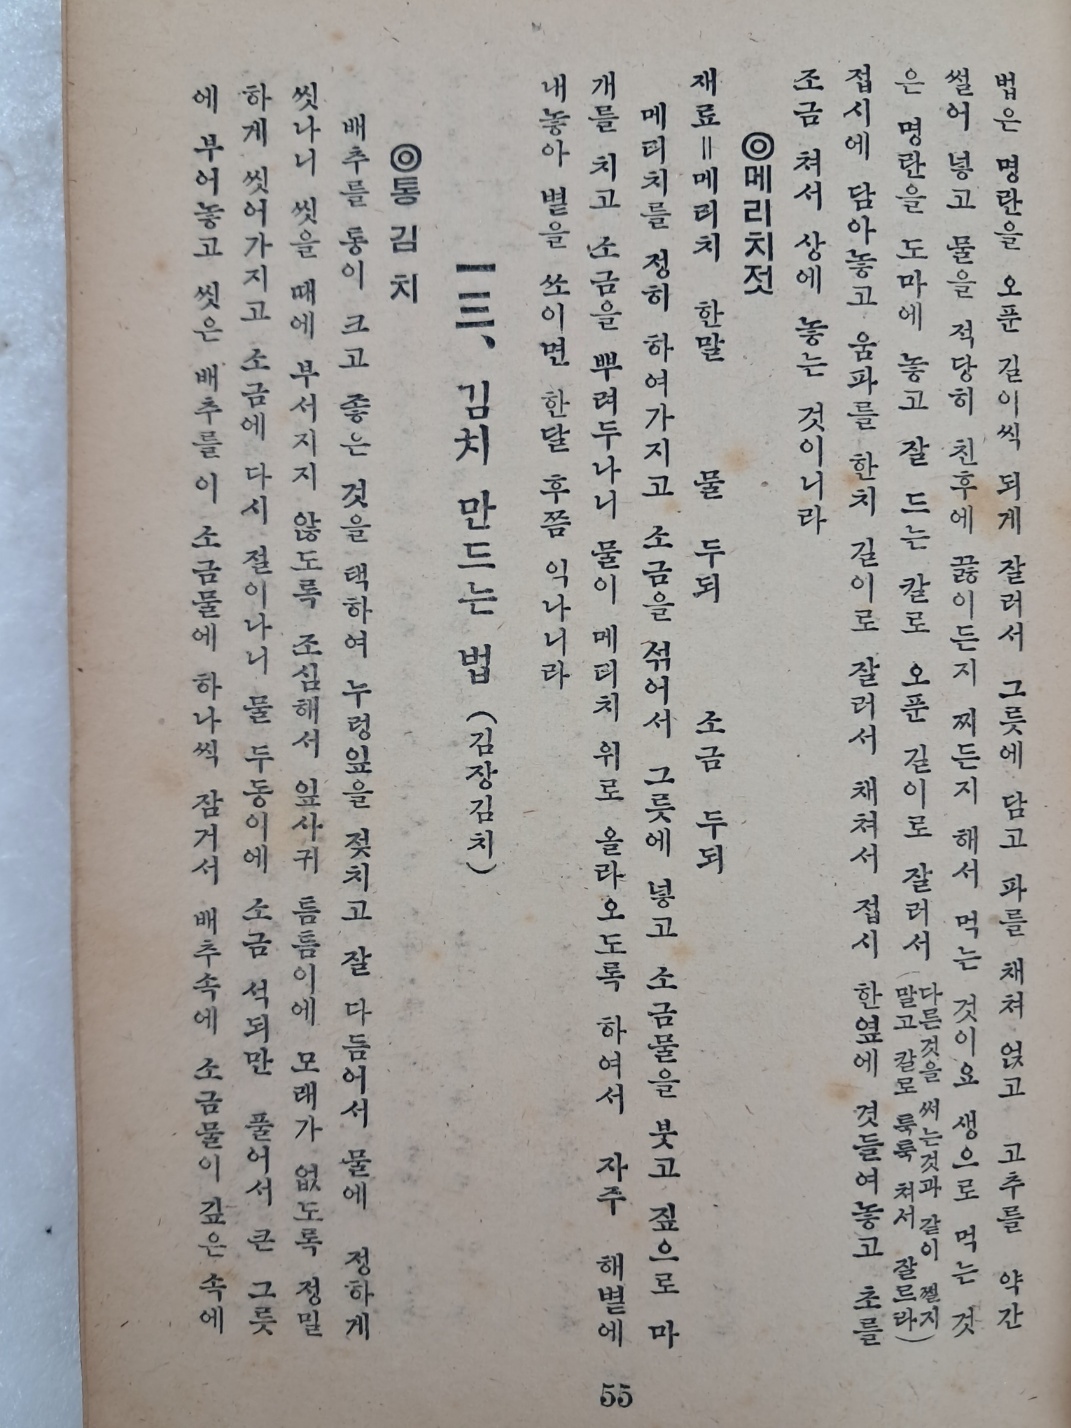 법은 명란을 오푼 길이씩 되게 잘러서 그릇에 담고 파를 채쳐 얹고 고추를 약간
썰어 넣고 물을 적당히 친후에 끓이든지 찌든지 해서 먹는 것이요 생으로 먹는 것
은 명란을 도마에 놓고 잘 드는 칼로 오푼 길이로 잘러서 (다른것을 써는것과 같이 썰지
말고 칼로 룩룩 쳐서 잘르라)
접시에 담아놓고 움파를 한치 길이로 잘러서 채쳐서 접시 한옆에 겻들여놓고 초를
조금 쳐서 상에 놓는 것이니라
◎메리치젓
재료=메리치 한말 물 두되 소금 두되
메리치를 정히 하여가지고 소금을 섞어서 그릇에 넣고 소금물을 붓고 짚으로 마
개를 치고 소금을 뿌려두나니 물이 메리치 위로 올라오도록 하여서 자주 해볕에
내놓아 볕을 쏘이면 한달 후쯤 익나니라
一三、 김치 만드는 법 (김장김치)
◎통김치
배추를 통이 크고 좋은 것을 택하여 누렁잎을 젖치고 잘 다듬어서 물에 정하게
씻나니 씻을 때에 부서지지 않도록 조심해서 잎사귀 틈틈이에 모래가 없도록 정밀
하게 씻어가지고 소금에 다시 절이나니 물 두동이에 소금 석되만 풀어서 큰 그릇
에 부어놓고 씻은 배추를 이 소금물에 하나씩 잠거서 배추속에 소금물이 깊은 속에
55